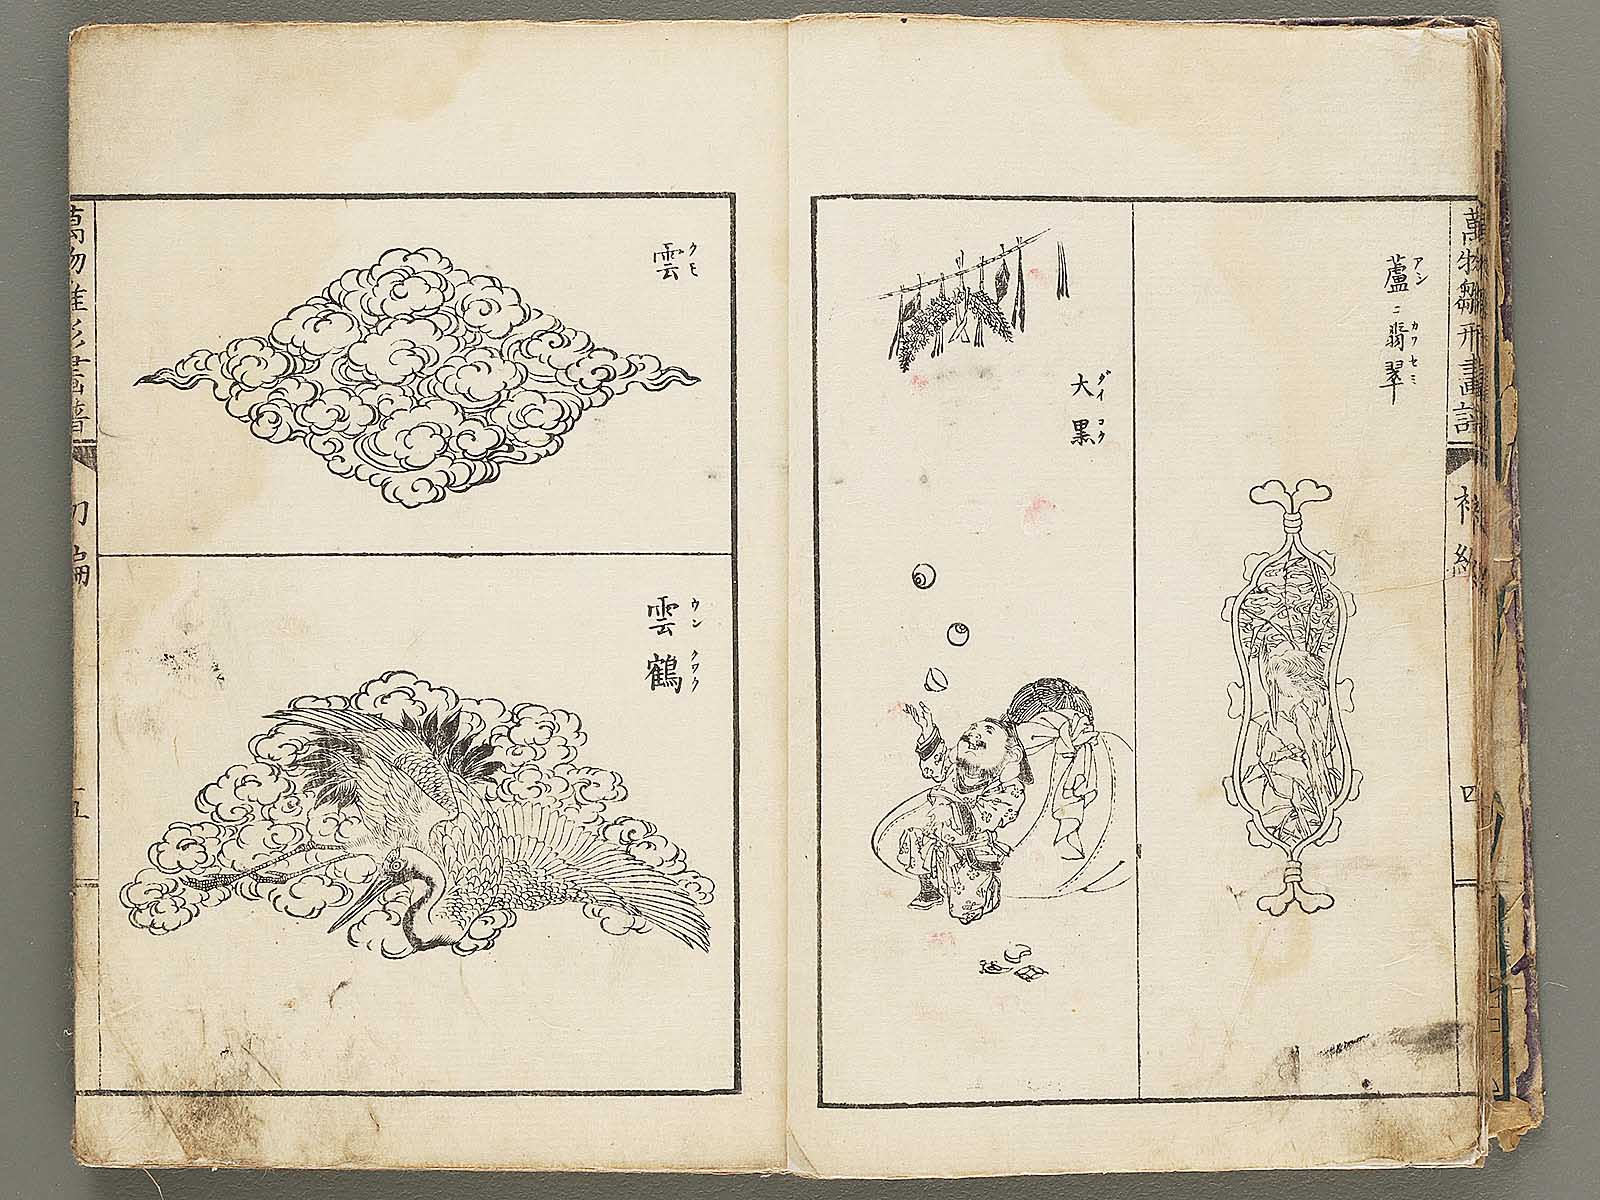 萬物雛形畫譜
四
蘆ニ翡翠
アシ
カワセミ
大黒
ダイコク
雲
クモ
雲鶴
ウンクワク
萬物雛形畫譜
初編
五